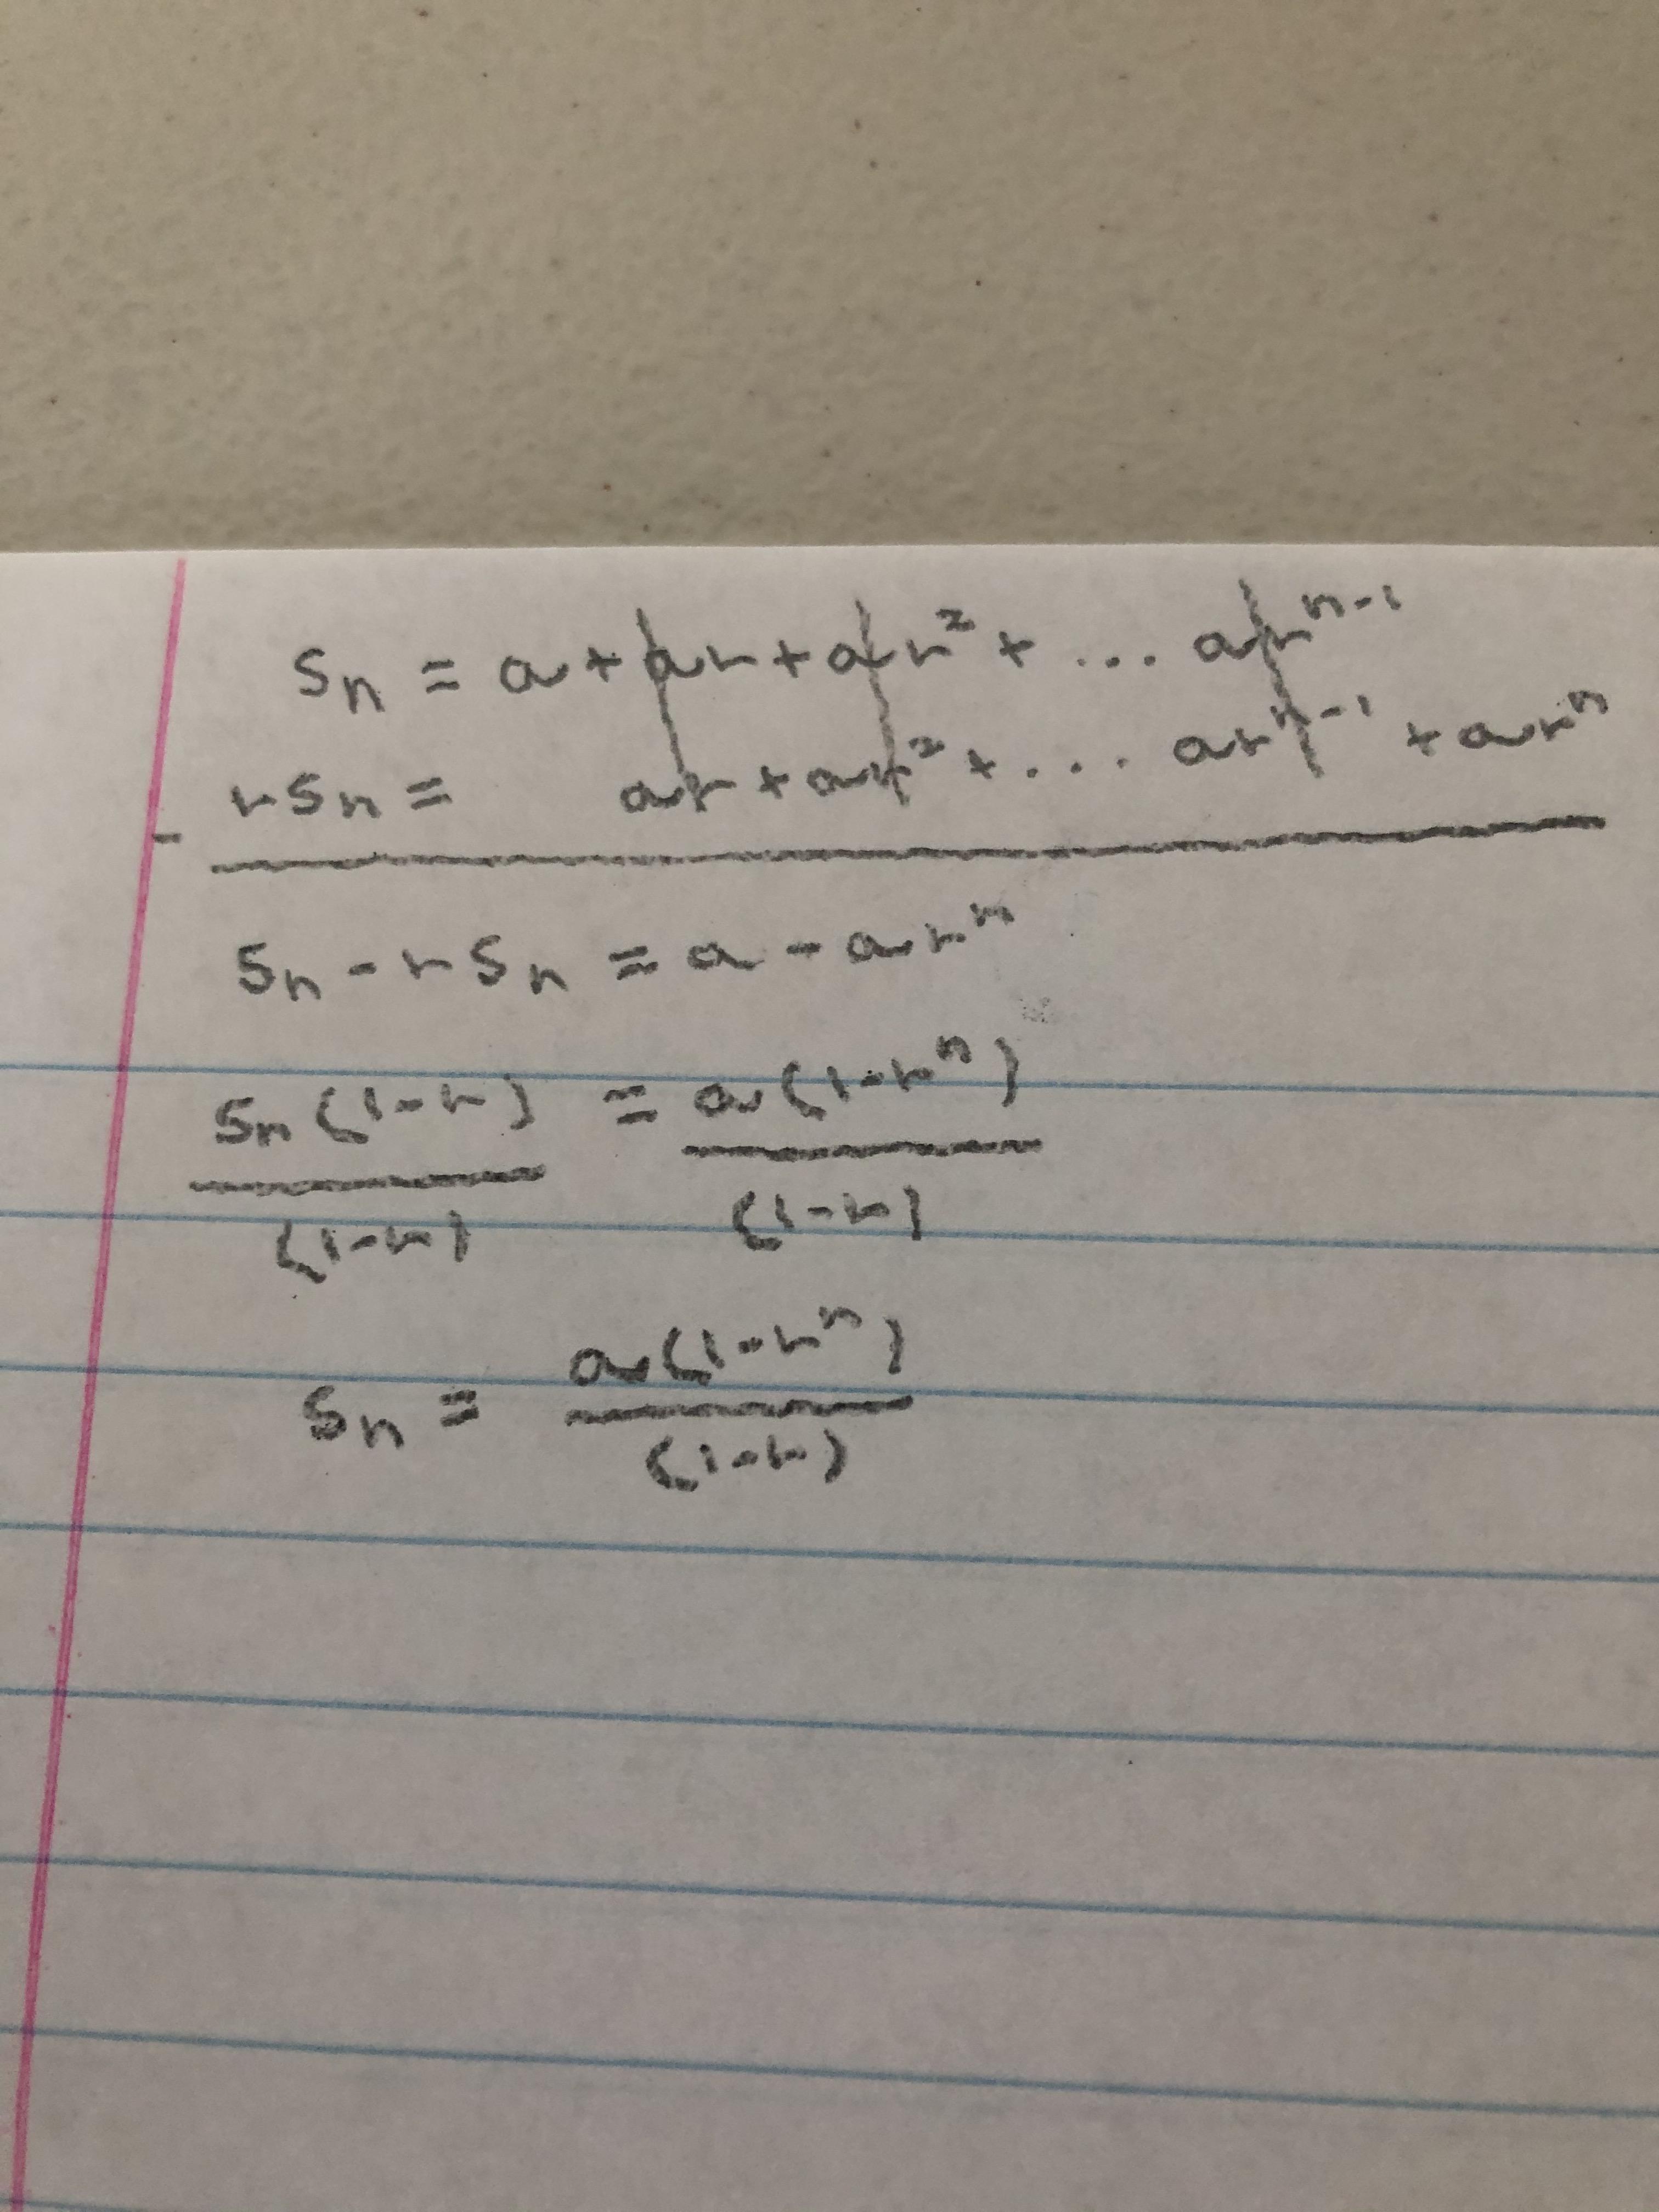 Sₙ = a + ar + ar² + ... arⁿ⁻¹
rSₙ = ar + ar² + ... arⁿ⁻¹ + arⁿ
-
Sₙ - rSₙ = a - arⁿ
Sₙ(1-r) = a(1-rⁿ)
(1-r) (1-r)
Sₙ = a(1-rⁿ)
(1-r)